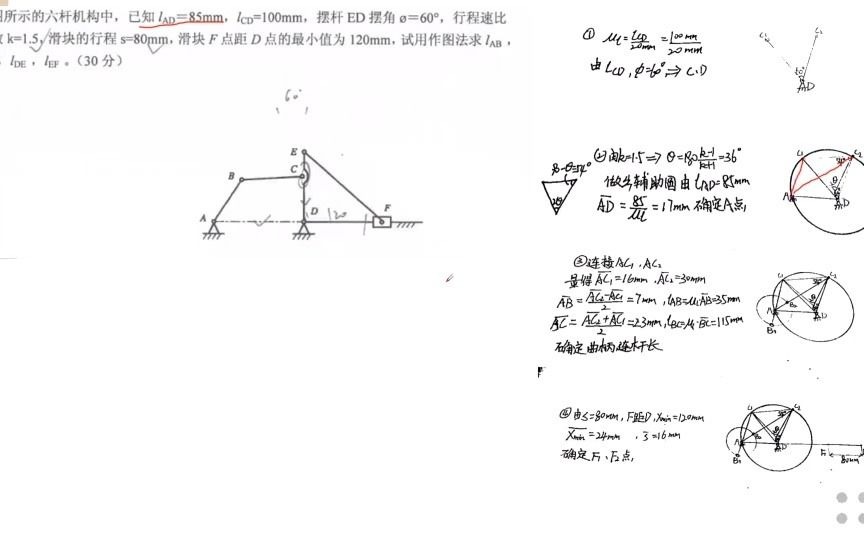 所示的六杆机构中，已知 l_AD=85mm，l_CD=100mm，摆杆 ED 摆角 ø=60°，行程速比
k=1.5，滑块的行程 s=80mm，滑块 F 点距 D 点的最小值为 120mm，试用作图法求 l_AB，
，l_DE，l_EF。（30 分）
60°
E
C
B
A
D
120
F
① μl=lCD/20mm=100mm/20mm
由LCD，φ=60°⇒C、D
C₁
C₂
60°
D
②由k=1.5⇒θ=180 k-1/k+1=36°
做出辅助圆由lAD=85mm
AD=85/μl=17mm 确定A点，
90-θ=54°
C₁
C₂
A
D
③连接AC₁、AC₂
量得AC₁=16mm，AC₂=30mm
AB=AC₂-AC₁/2=7mm，lAB=μl·AB=35mm
BC=AC₂+AC₁/2=23mm，lBC=μl·BC=115mm
确定曲柄、连杆长
C₁
C₂
A
D
B₁
④由S=80mm，F距D，Xmin=120mm
Xmin=24mm，S=16mm
确定F₁、F₂点，
C₁
C₂
A
D
B₁
F₁
80mm